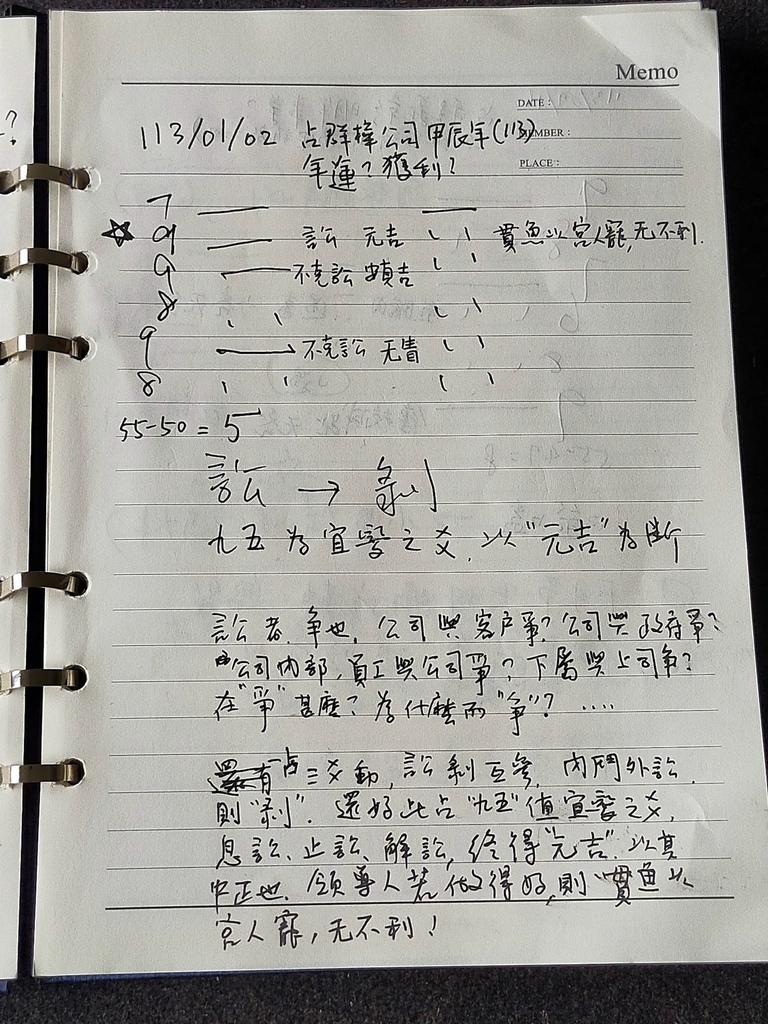 ?
Memo
DATE：
MEMBER：
PLACE：
113/01/02 占群樟公司甲辰年(113)
年運？獲利？
7
☆ 9 訟 元吉 貫魚以宮人寵，无不利.
9 不克訟 安貞吉
8
9 不克訟 无眚
8
55-50 = 5
訟 → 剝
九五為宜變之爻，以"元吉"為斷
訟者，爭也，公司與客戶爭？公司與政府爭？
公司內部，員工與公司爭？下屬與上司爭？
在"爭"甚麼？為什麼而"爭"？....
此占三爻動，訟剝互參，內鬥外訟，
則"剝"．還好此占"九五"值宜變之爻，
息訟、止訟、解訟，終得"元吉"．以其
中正也．領導人若做得好，則"貫魚以
宮人寵，无不利！